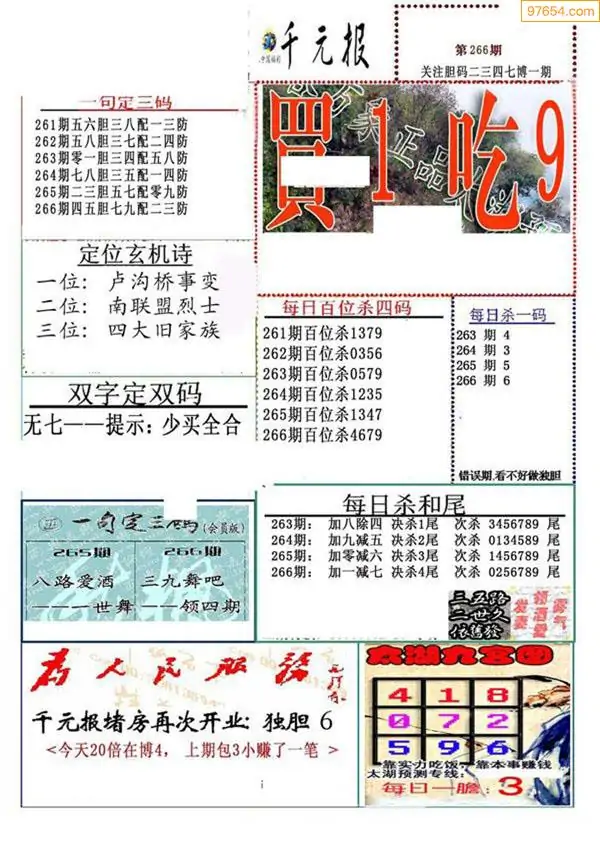 97654.com
千元报
中国福利
第266期
关注胆码二三四七博一期
一句定三码
261期五六胆三八配一三防
262期五八胆三七配二四防
263期零一胆三四配五八防
264期七八胆三五配一四防
265期二三胆五七配零九防
266期四五胆七九配二三防
買1吃9
定位玄机诗
一位: 卢沟桥事变
二位: 南联盟烈士
三位: 四大旧家族
每日百位杀四码
261期百位杀1379
262期百位杀0356
263期百位杀0579
264期百位杀1235
265期百位杀1347
266期百位杀4679
每日杀一码
263 期 4
264 期 3
265 期 5
266 期 6
错误期,看不好做独胆
双字定双码
无七——提示: 少买全合
一句定三码(会员版)
265期 266期
八路爱酒 三九舞吧
——一世舞 ——领四期
每日杀和尾
263期: 加八除四 决杀1尾 次杀 3456789 尾
264期: 加九减五 决杀2尾 次杀 0134589 尾
265期: 加零减六 决杀3尾 次杀 1456789 尾
266期: 加一减七 决杀4尾 次杀 0256789 尾
三五路
二世久
依旧發
为人民服务
毛泽东
千元报堵房再次开业: 独胆 6
<今天20倍在博4, 上期包3小赚了一笔 >
太湖九宫图
4 1 8
0 7 2
5 9 6
靠实力吃饭, 靠本事赚钱
太湖预测专线:
每日一胆: 3